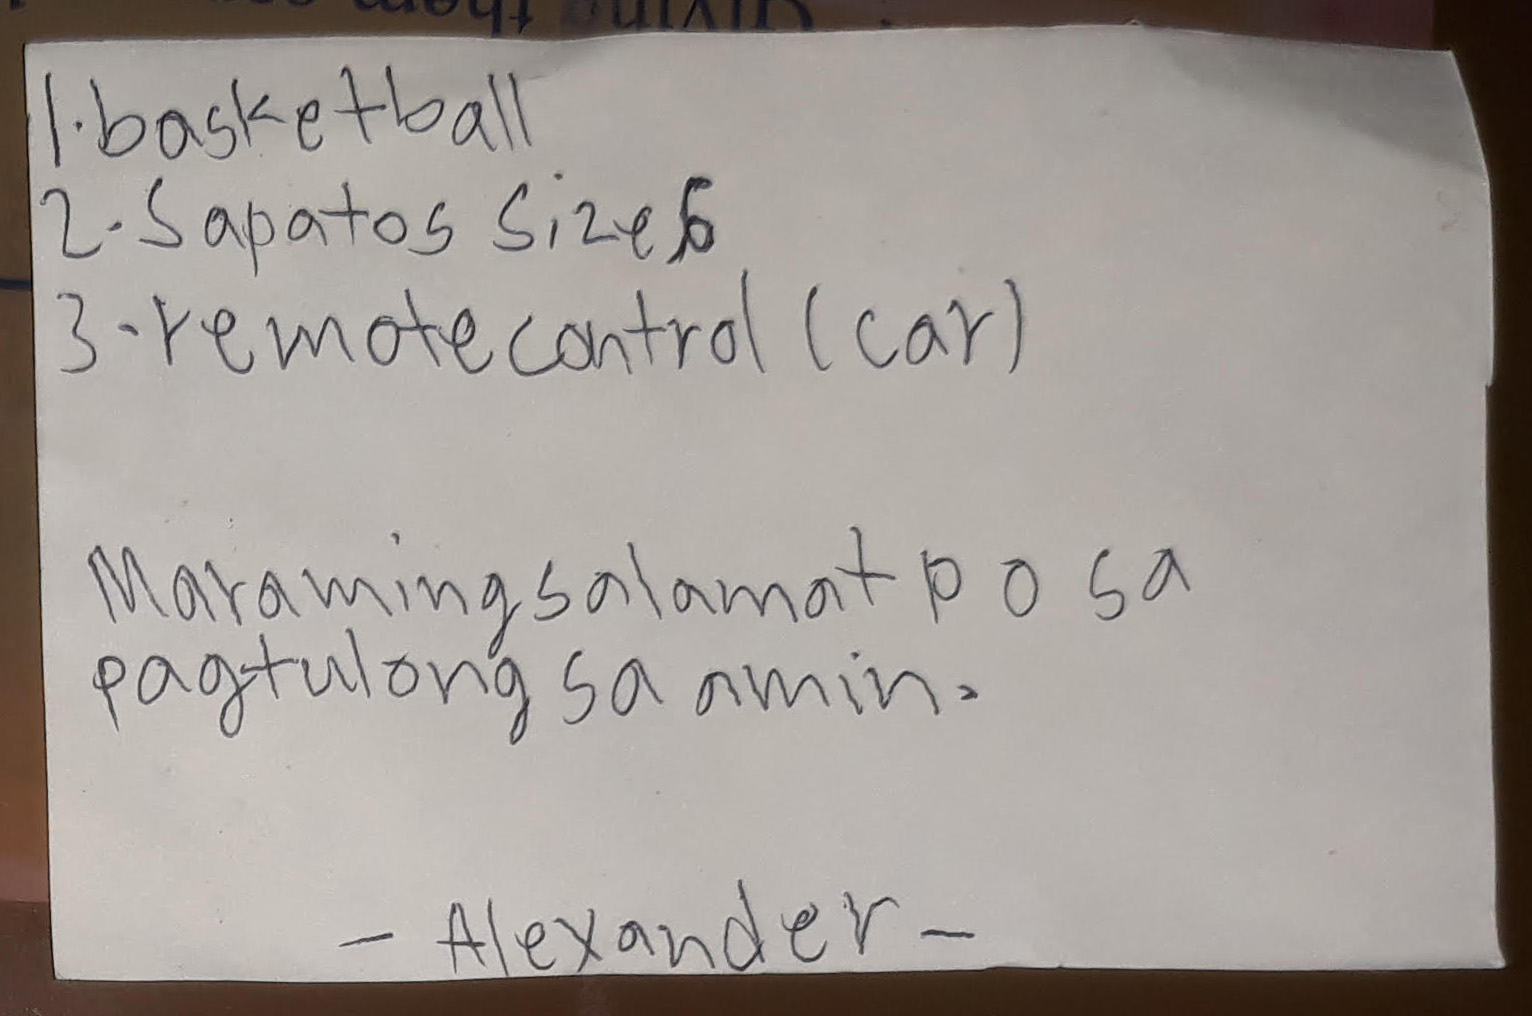 giving them
1. basketball
2. Sapatos size 6
3. remote control (car)
Maraming salamat po sa
pagtulong sa amin.
- Alexander -